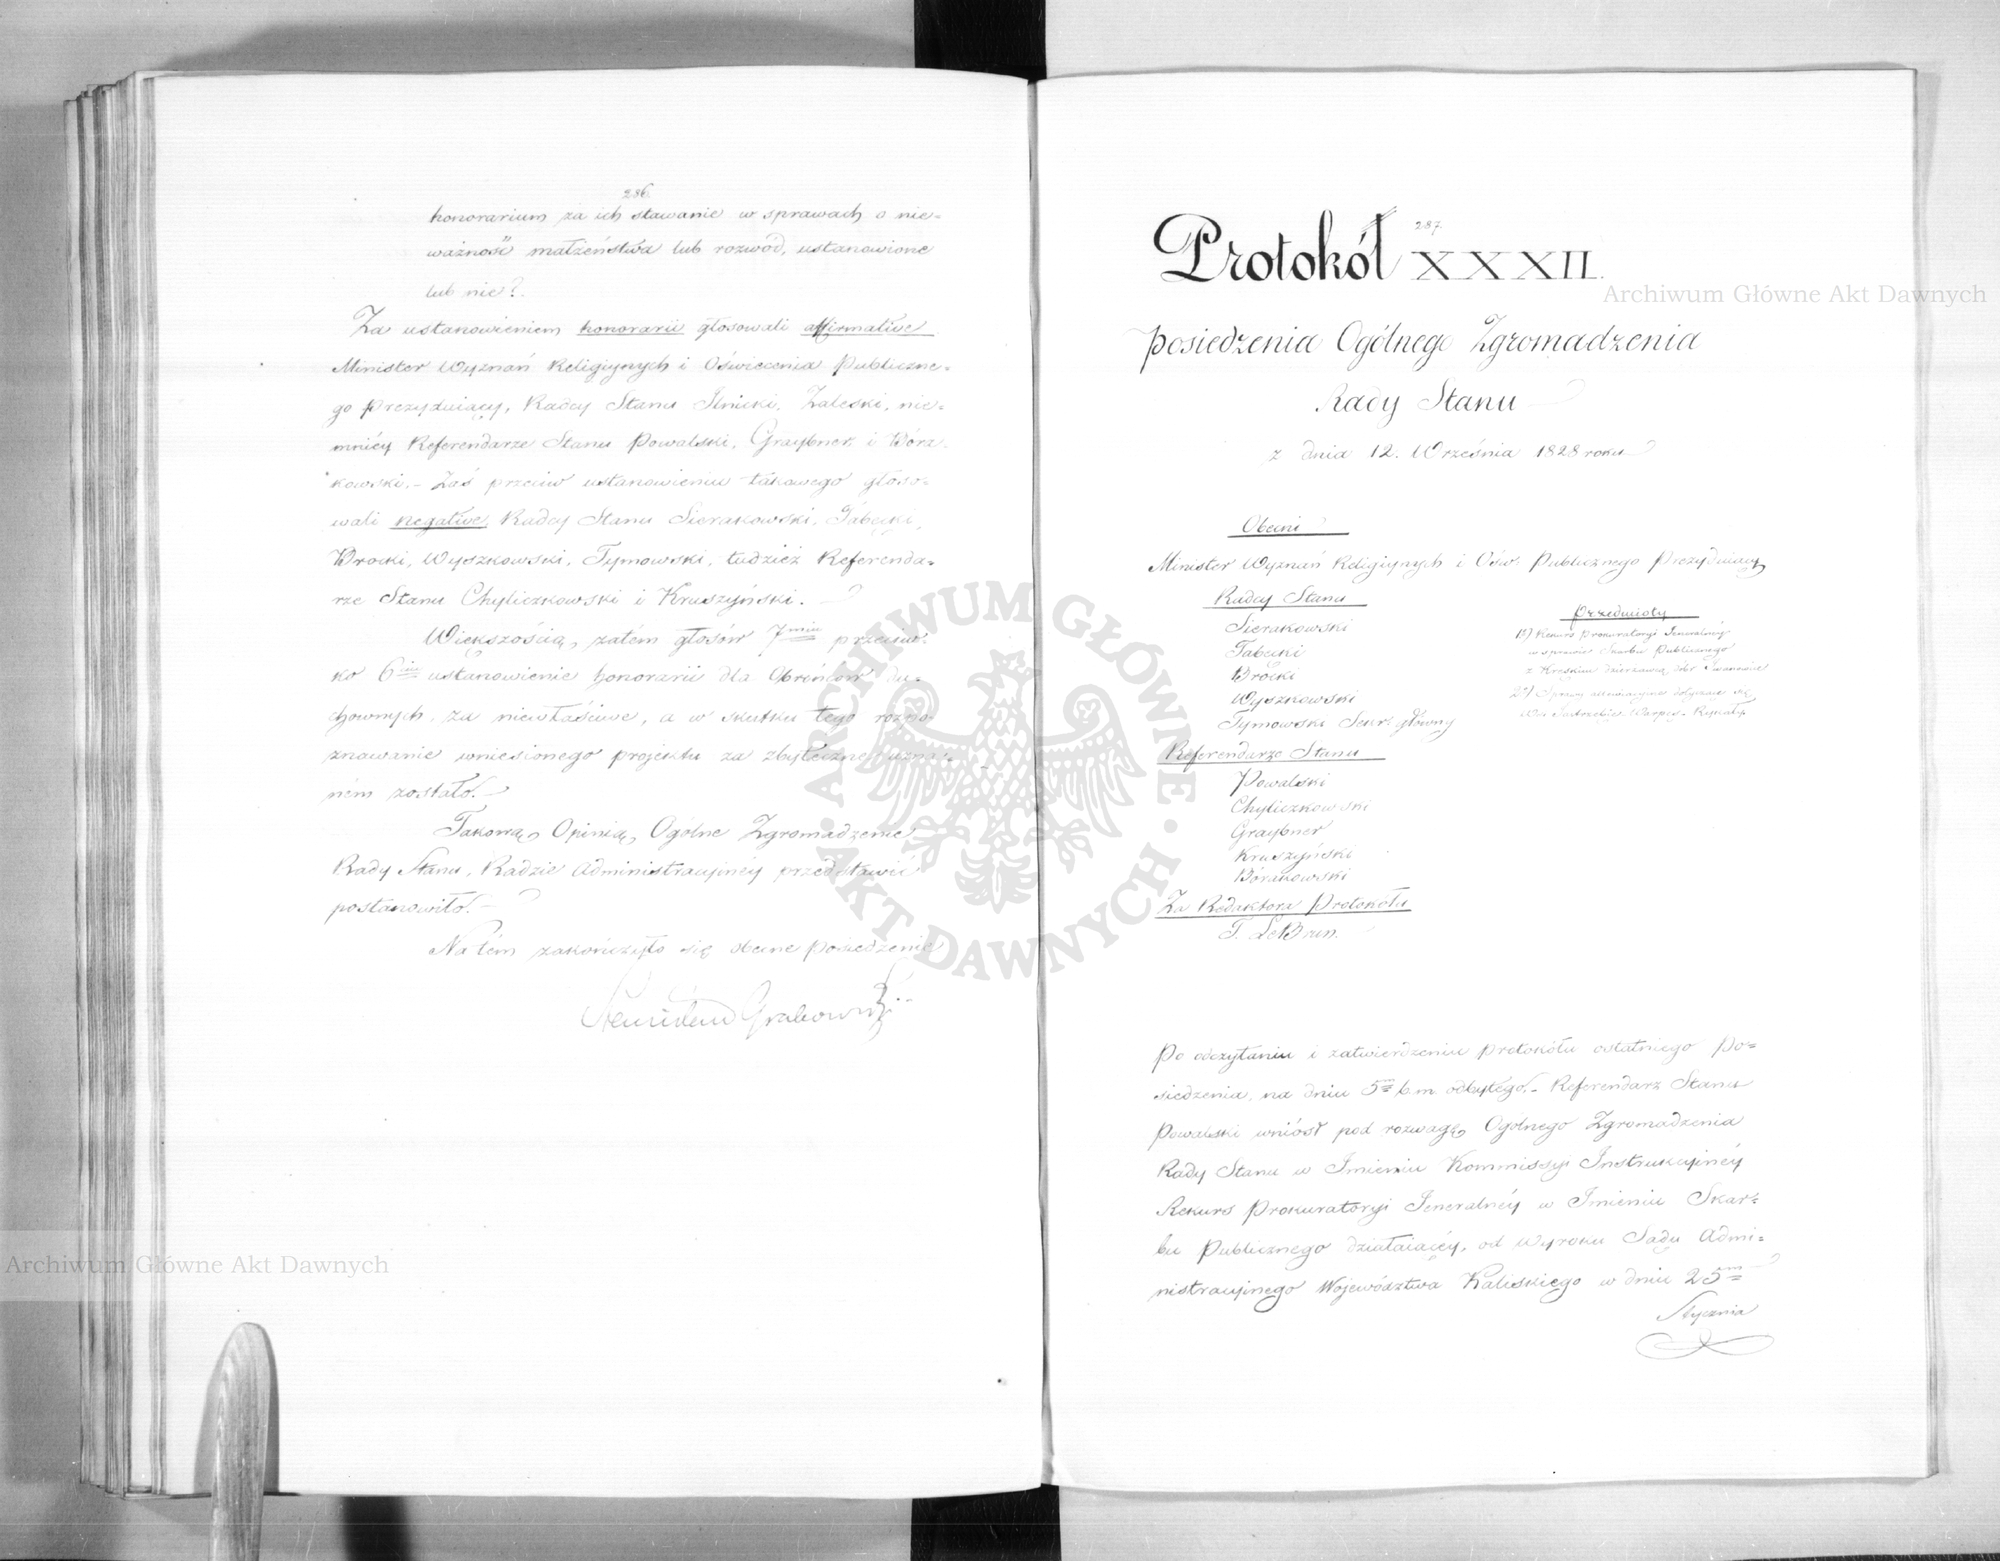 286.
honorarium za ich stawanie w sprawach o nie=
ważność małżeństwa lub rozwód, ustanowione
lub nie?.
Za ustanowieniem honorarii głosowali affirmative
Minister Wyznań Religiynych i Oświecenia Publiczne=
go Prezyduiący, Radcy Stanu Zaleski, nie=
mniéy Referendarze Stanu Powalski, Graybner i Bóra=
kowski. – Zaś przeciw ustanowieniu takowego głoso=
wali negative, Radcy Stanu Sierakowski, Tabęcki,
Brocki, Wyszkowski, Tymowski, tudzież Referenda=
rze Stanu Chyliczkowski i Kruszyński.
Większością zatém głosów 7miu przeciw=
ko 6iu ustanowienie honorarii dla Obrońców du=
chownych, za niewłaściwe, a w skutku tego rozpo=
znawanie wniesionego projektu za zbyteczne uzna=
ném zostało. –
Takową Opinią, Ogólne Zgromadzenie
Rady Stanu, Radzie Administracyjnéy przedstawić
postanowiło. –
Na tém zakończyło się obecne posiedzenie
Stanisław Grabowski
287.
Protokół XXXII.
posiedzenia Ogólnego Zgromadzenia
Rady Stanu
z dnia 12. Września 1828 roku
Obecni
Minister Wyznań Religiynych i Ośw. Publicznego Prezyduiący
Radcy Stanu
Sierakowski
Tabęcki
Brocki
Wyszkowski
Tymowski Sekr. główny
Referendarze Stanu
Powalski
Chyliczkowski
Graybner
Kruszyński
Bórakowski
Za Redaktora Protokółu
T. LeBrun.
Przedmioty
1º) Rekurs Prokuratoryi Jeneralnéy
w sprawie Skarbu Publicznego
z Kręskim dzierżawcą dóbr Iwanowice
2º) Sprawy dotyczące się
Wsi Jastrzębie
Po odczytaniu i zatwierdzeniu protokółu ostatniego Po=
siedzenia, na dniu 5m b.m. odbytego. – Referendarz Stanu
Powalski wniósł pod rozwagę Ogólnego Zgromadzenia
Rady Stanu w Imieniu Kommissyi Instrukcyinéy
Rekurs Prokuratoryi Jeneralnéy w Imieniu Skar=
bu Publicznego działaiącéy, od wyroku Sądu Admi=
nistracyjnego Województwa Kaliskiego w dniu 25m
Stycznia
Archiwum Główne Akt Dawnych
Archiwum Główne Akt Dawnych
ARCHIWUM GŁÓWNE
AKT DAWNYCH